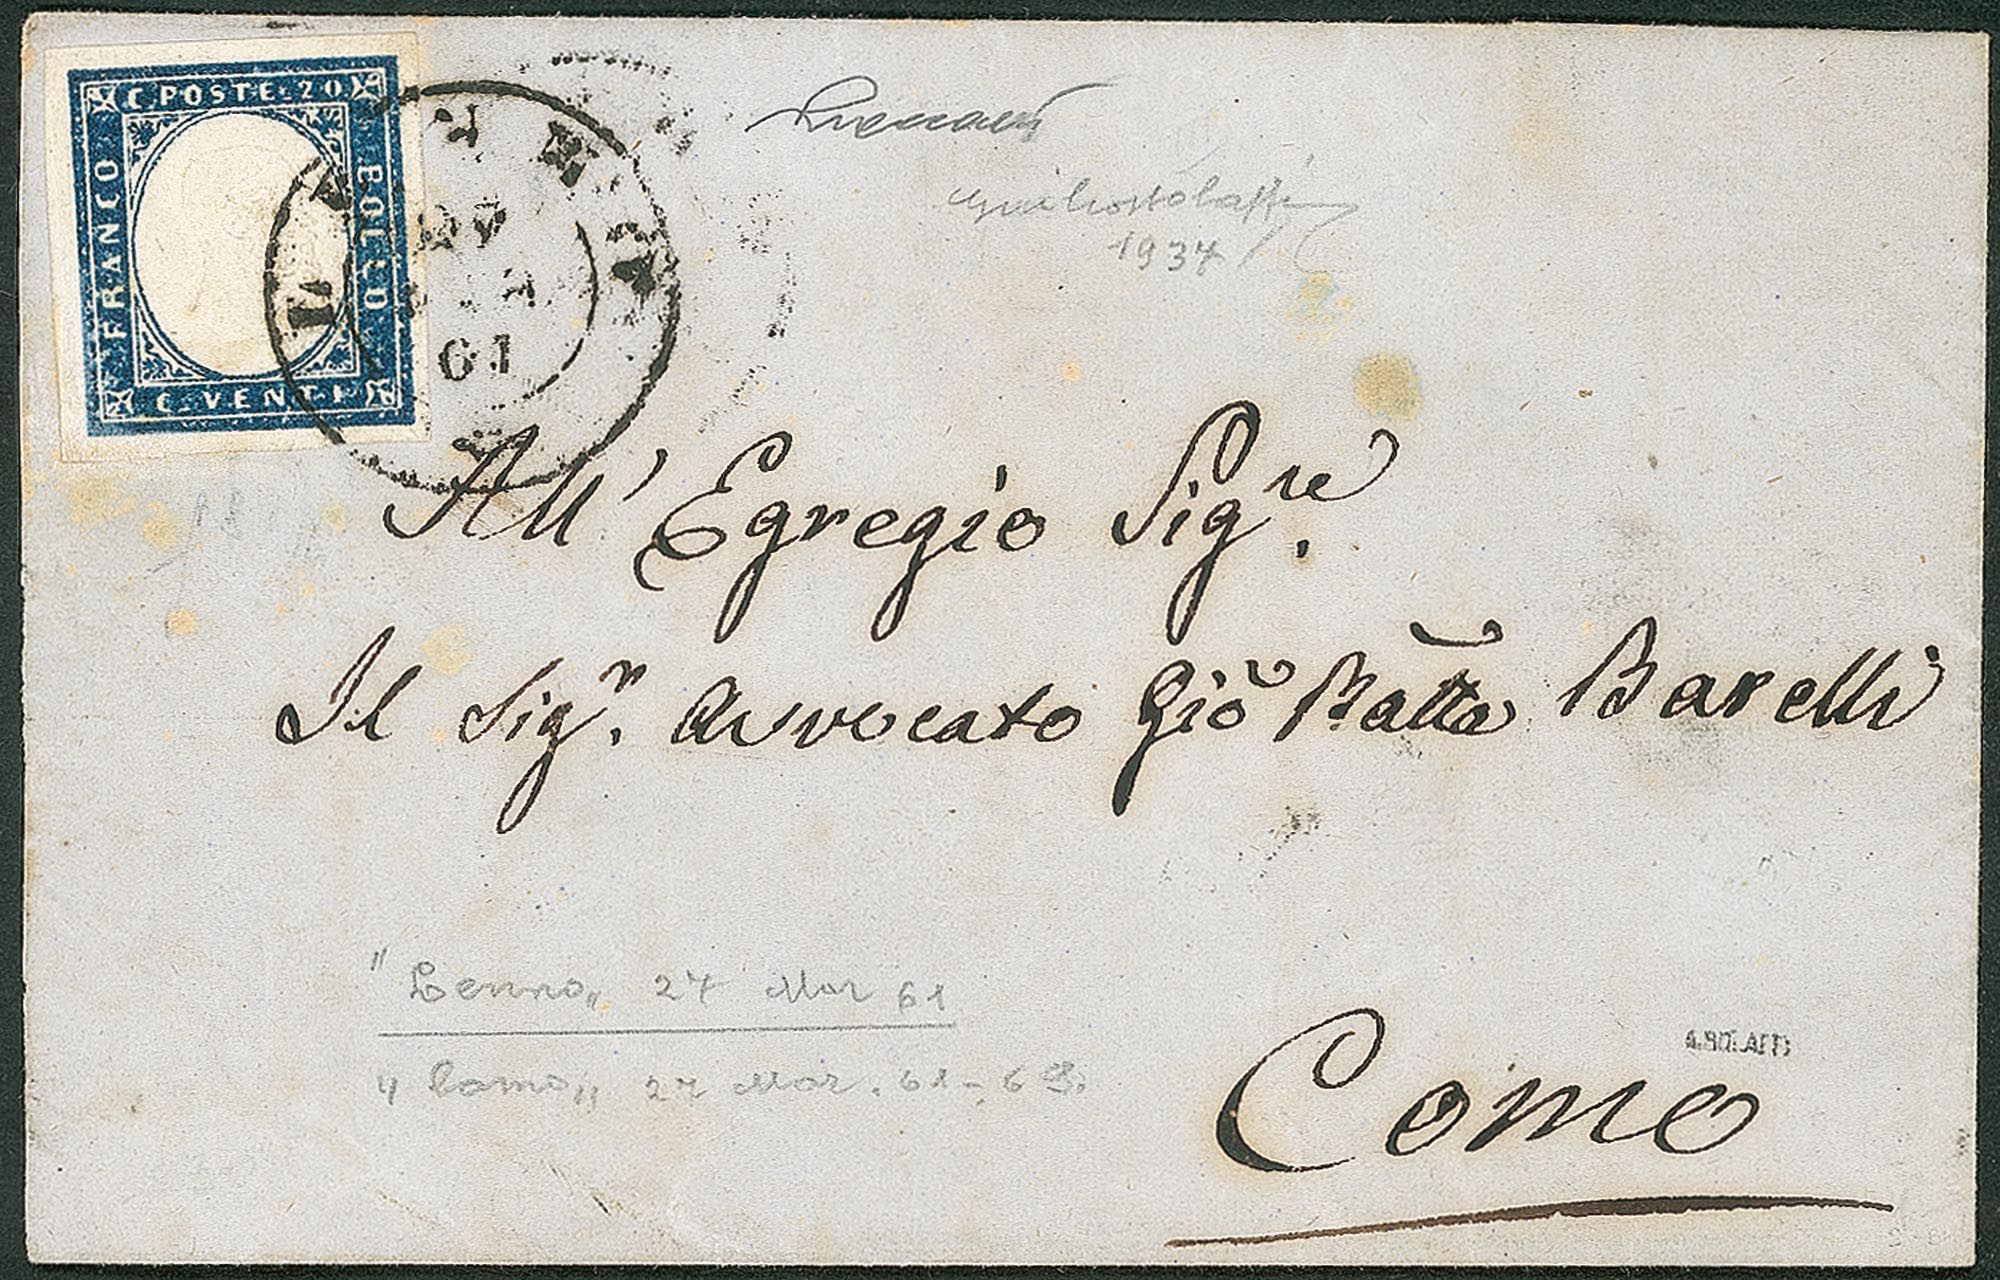 C. POSTE. 20
FRANCO
BOLLO
C. VENTI
61
1937
All' Egregio Sig.re
Il Sig.r Avvocato Gio Batta Barelli
"Lenno" 27 Mar 61
"Como" 27 Mar. 61 - 6 S.
A. BOLAFFI
Como